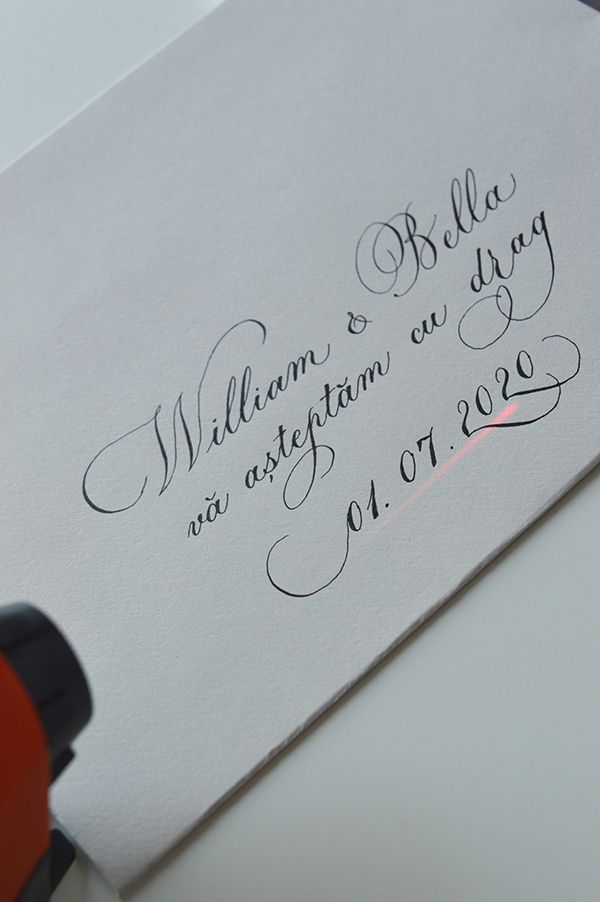 William & Bella
vă așteptăm cu drag
01.07.2020